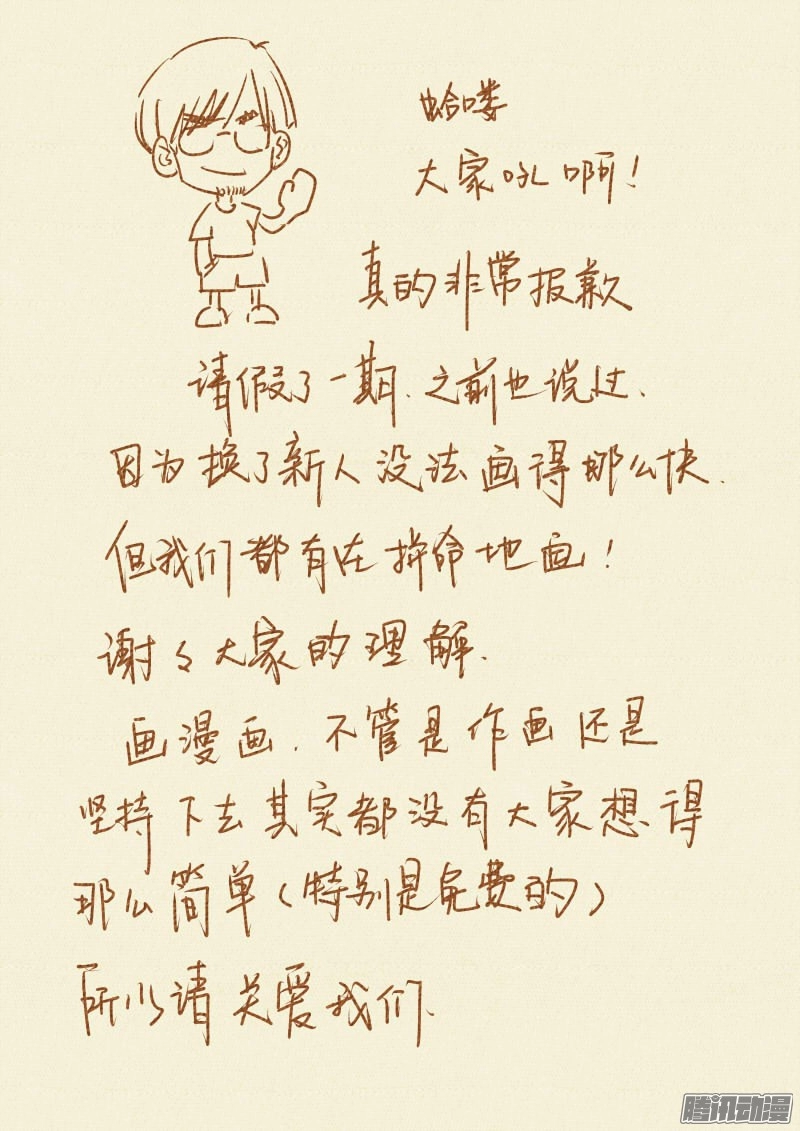 蛤喽
大家吼啊！
真的非常报歉
请假了一期.之前也说过.
因为换了新人没法画得那么快.
但我们都有在拼命地画！
谢々大家的理解.
画漫画.不管是作画还是
坚持下去其实都没有大家想得
那么简单(特别是免费的)
所以请关爱我们.
腾讯动漫